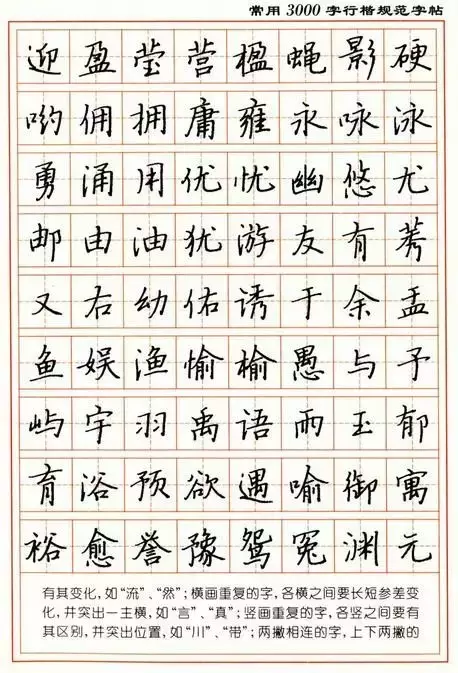 常用3000字行楷规范字帖
迎盈莹营楹蝇影硬
哟佣拥庸雍永咏泳
勇涌用优忧幽悠尤
邮由油犹游友有莠
又右幼佑诱于余盂
鱼娱渔愉榆愚与予
屿宇羽禹语雨玉郁
育浴预欲遇喻御寓
裕愈誉豫鸳冤渊元
有其变化，如“流”、“然”；横画重复的字，各横之间要长短参差变
化，并突出一主横，如“言”、“真”；竖画重复的字，各竖之间要有
其区别，并突出位置，如“川”、“带”；两撇相连的字，上下两撇的